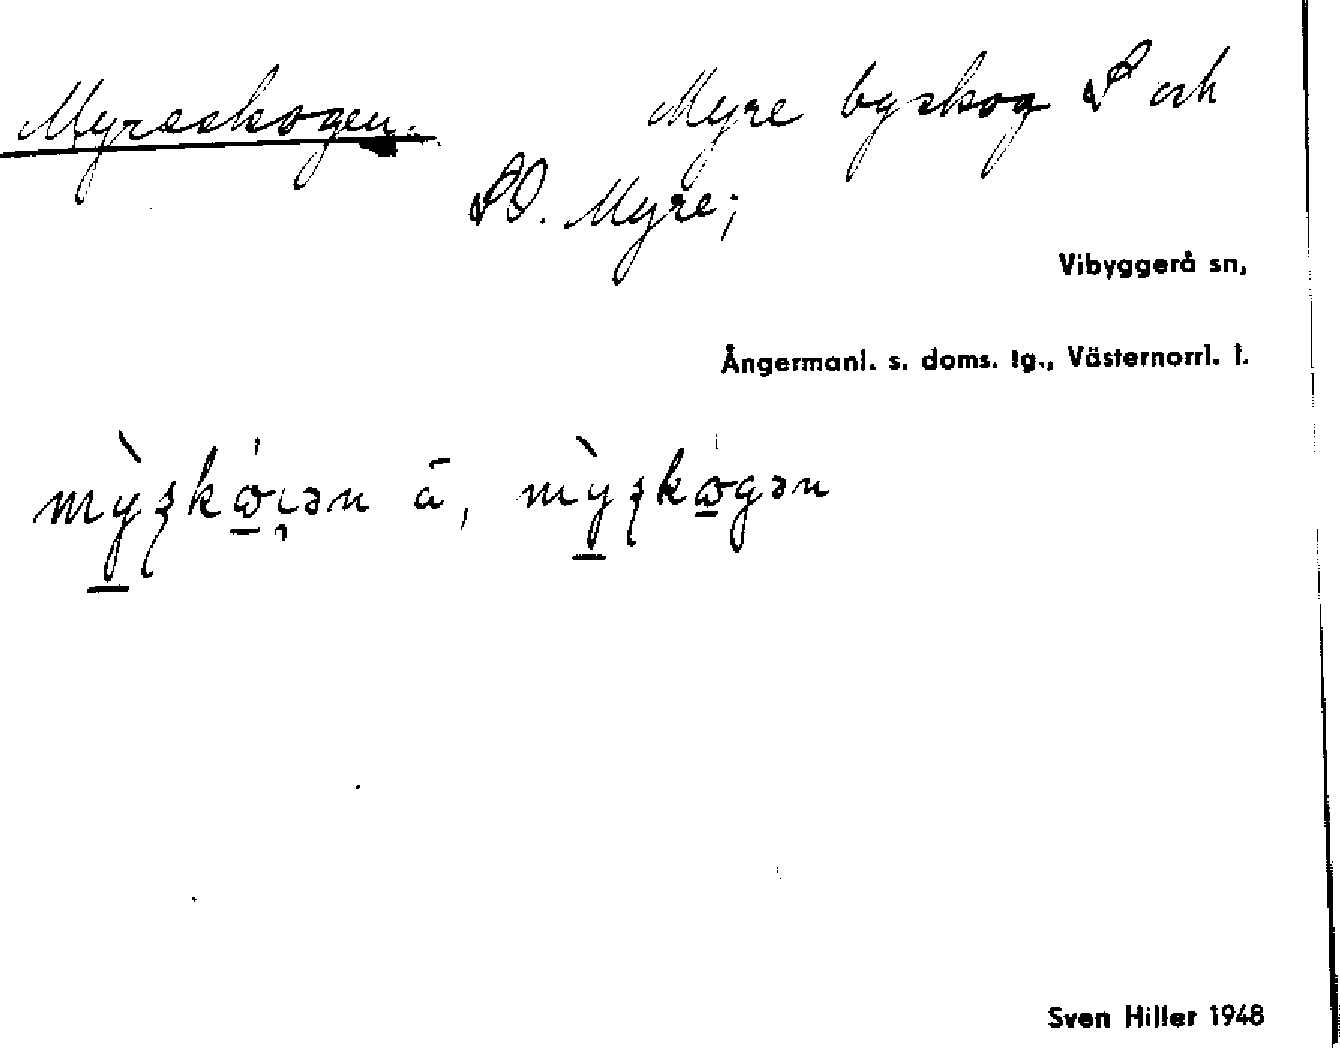 Myreskogen. Myre byskog S och
SO. Myre;
Vibyggerå sn,
Ångermanl. s. doms. tg., Västernorrl. l.
ā,
Sven Hiller 1948